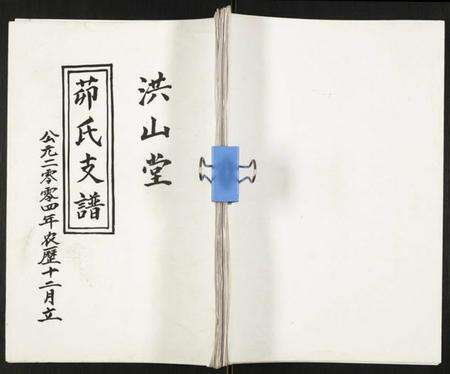 洪山堂
茆氏支譜
公元二零零四年农曆十二月立